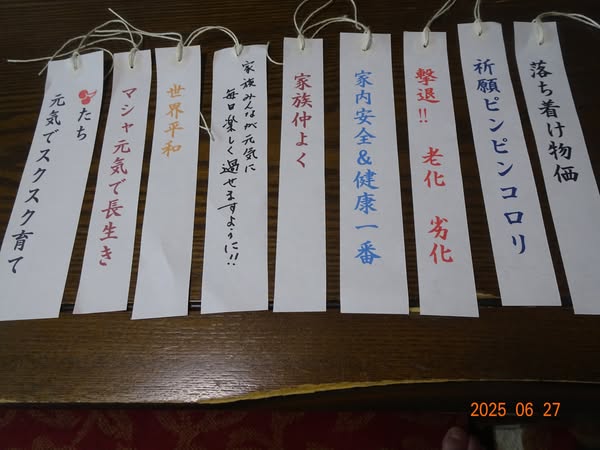 落ち着け物価
祈願ピンピンコロリ
撃退!! 老化 劣化
家内安全&健康一番
家族仲よく
家族みんなが元気に
毎日楽しく過せますように!!
世界平和
マシャ元気で長生き
たち
元気でスクスク育て
2025 06 27